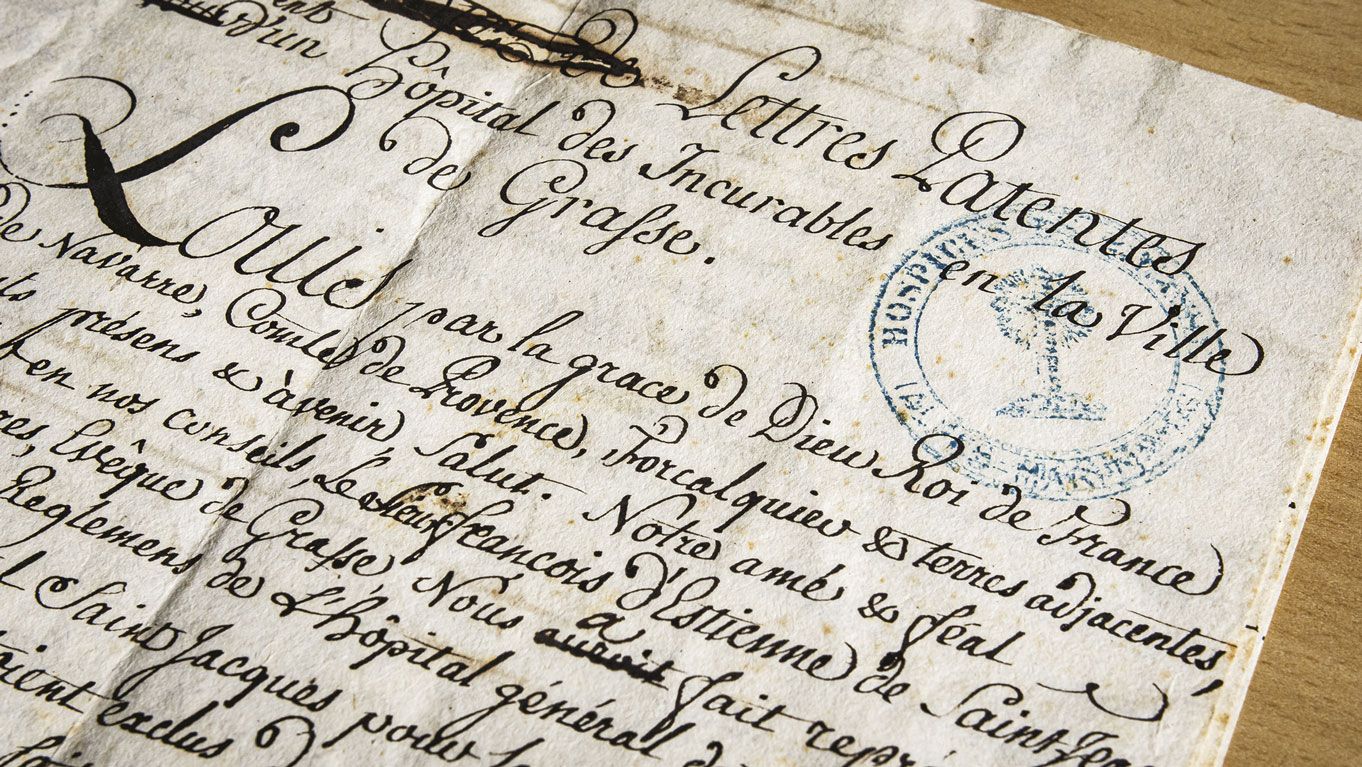 Lettres Patentes
d'un hôpital des Incurables en la Ville
de Grasse.
Louis par la grace de Dieu Roi de France
de Navarre, Comte de Provence, Forcalquier & terres adjacentes,
présens & àvenir, Salut. Notre amé & féal
en nos conseils, Le François d'Estienne de Saint Jea
Evêque de Grasse Nous a fait repré
Reglemens de L'hôpital général d
Saint Jacques pour l
exclus d
HOSPICES